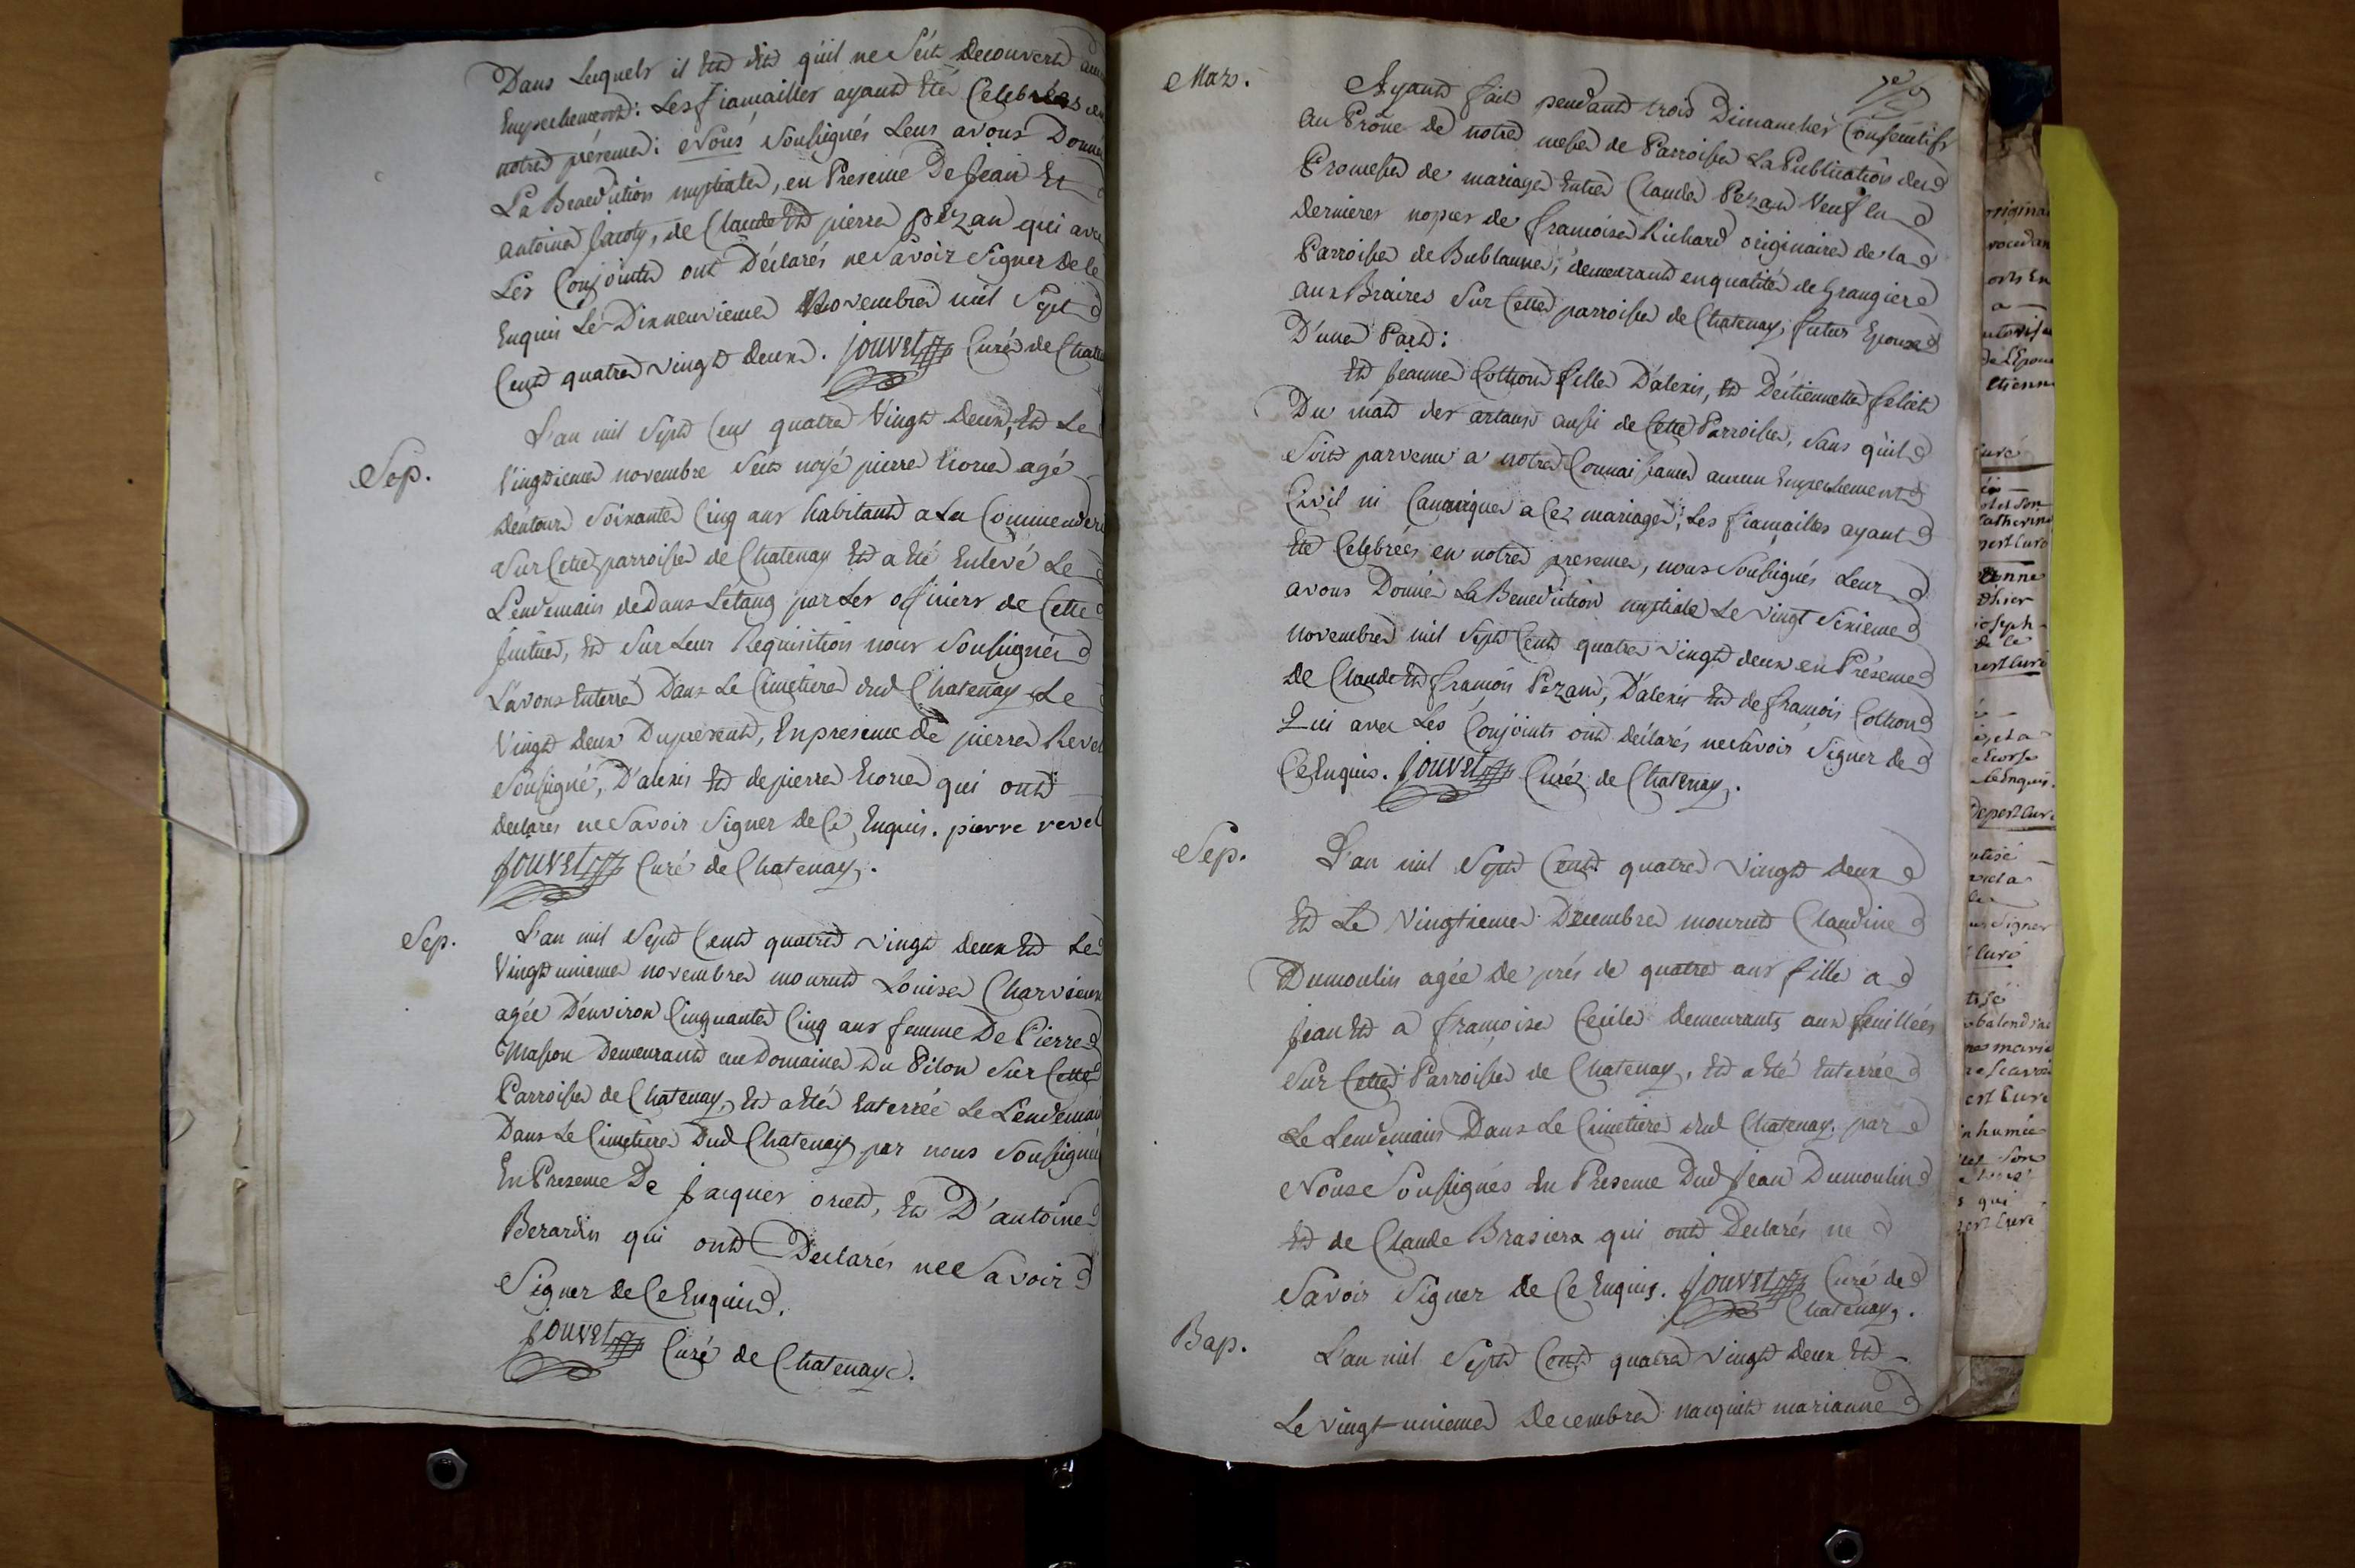 Dans lesquels il Est dit qu'il ne s'est decouvert aucun
Empechement: Les fiancailles ayant Eté Celebrées en
notre présence: Nous soussignés Leur avons Donné
La Benediction nuptiale, en Presence De Jean Et
antoine Jacoty, de Claude Et pierre pezan qui avec
Les Conjoints ont Déclarés ne Savoir Signer de Ce
Enquis Le Dixneuvieme Novembre mil Sept
Cent quatre vingt deux. Jouvet Curé de Chate
Sep.
L'an mil Sept Cens quatre Vingt Deux, Et Le
Vingtieme novembre s'est noyé pierre agé
dentour Soixante Cinq ans habitant a La Commenderie
Sur Cette parroisse de Chatenay Et a Eté Enlevé Le
Lendemain de Dans L'étang par Les officiers de Cette
Justice, Et Sur Leur Requisition nous Soussignés
L'avons Enterré Dans Le Cimetiere dud Chatenay Le
Vingt deux Du present, En presence de pierre Revel
Soussigné, D'alexis Et de pierre qui ont
declarés ne Savoir Signer De Ce Enquis. pierre revel
Jouvet Curé de Chatenay.
Sep.
L'an mil Sept Cent quatre vingt deux Et Le
Vingt unieme novembre mourut Louise Charvieux
agée D'environ Cinquante Cinq ans femme De Pierre
Masson Demeurant au Domaine Du Pilon Sur Cette
Parroisse de Chatenay, Et a Eté Enterrée Le Lendemain
Dans Le Cimetiere Dud Chatenay par nous Soussigné
En Presence De Jacques oriet, Et D'antoine
Berardin qui ont Declarés ne Savoir
Signer de Ce Enquis.
Jouvet Curé de Chatenay.
Mar.
Ayant fait pendant trois Dimanches Consecutifs
au Prône de notre messe de Parroisse La Publication des
Promesse de mariage Entre Claude Pezan Veuf En
dernieres nopces de francoise Richard originaire de la
Parroisse de Bublanne, demeurant en qualité de Grangier
aux Braires Sur Cette parroisse de Chatenay, futur Epoux
D'une Part:
Et Jeanne Cottion fille D'alexis, Et D'étiennette feliet
Du mat des artaus aussi de Cette Parroisse, Sans qu'il
Soit parvenu a notre Connaissance aucun Empechement
Civil ni Canonique a Cez mariage; Les fiancailles ayant
Eté Celebrées en notre presence, nous Soussignés Leur
avons Donné La Benediction nuptiale Le vingt Sixieme
novembre mil Sept Cent quatre vingt deux en Présence
De Claude Et francois Pezan, D'alexis Et de francois Cottion
Qui avec Les Conjoints ont déclarés ne Savoir Signer de
Ce Enquis. Jouvet Curé de Chatenay.
Sep.
L'an mil Sept Cent quatre vingt deux
Et Le Vingtieme Decembre mourut Claudine
Dumoulin agée de prés de quatre ans fille a
Jean Et a francoise Cecile demeurants aux feuillées
Sur Cette Parroisse de Chatenay, Et a Eté Enterrée
Le Lendemain Dans Le Cimetiere dud Chatenay par
Nous Soussignés En Presence Dud Jean Dumoulin
Et de Claude Brasier qui ont Declarés ne
Savoir Signer de Ce Enquis. Jouvet Curé de
Chatenay.
Bap.
L'an mil Sept Cent quatre vingt deux Et
Le vingt-unieme Decembre nacquit marianne